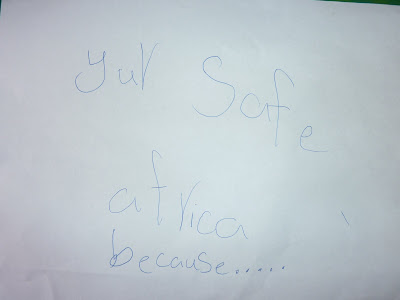 yur Safe
africa
because.....